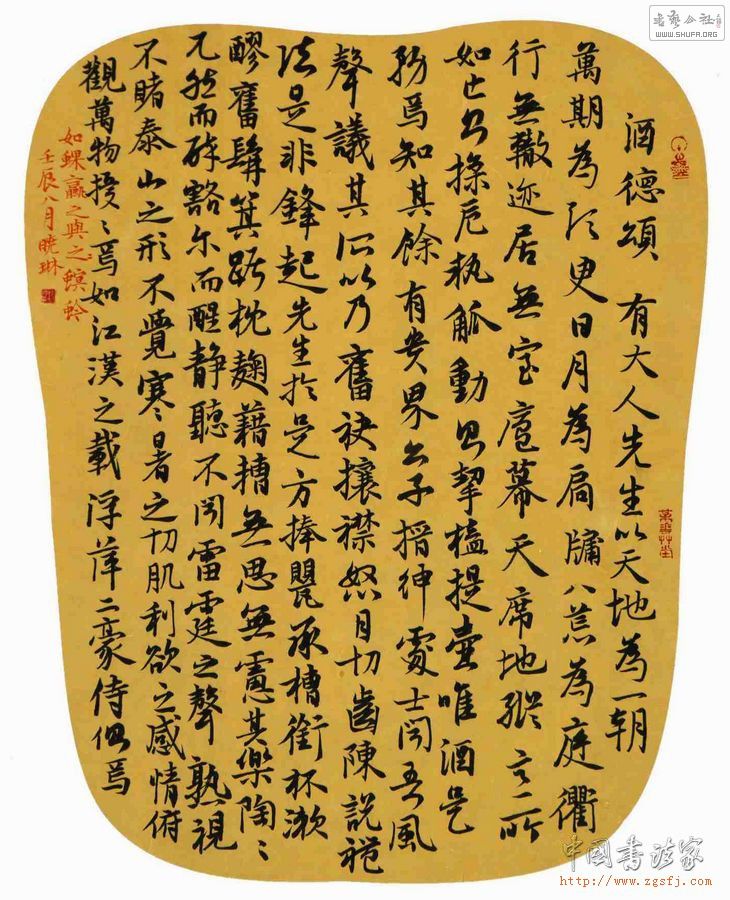 酒德頌 有大人先生以天地為一朝
萬期為須臾日月為扃牖八荒為庭衢
行無轍迹居無室廬幕天席地縱意所
如止則操卮執觚動則挈榼提壺唯酒是
務焉知其餘有貴界公子搢紳處士聞吾風
聲議其所以乃奮袂攘襟怒目切齒陳說禮
法是非鋒起先生於是方捧甖承槽銜杯漱
醪奮髯箕踞枕麴藉糟無思無慮其樂陶〻
兀然而醉豁尔而醒静聽不聞雷霆之聲熟視
不睹泰山之形不覺寒暑之切肌利欲之感情俯
觀萬物擾〻焉如江漢之載浮萍二豪侍側焉
如蜾蠃之與之螟蛉
壬辰八月曉琳
書藝公社
WWW.SHUFA.ORG
中國书法家
http://www.zgsfj.com